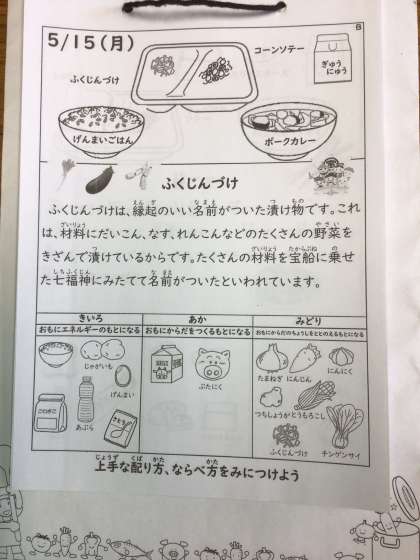 B
5/15(月)
コーンソテー
ぎゅう
にゅう
ふくじんづけ
げんまいごはん
ポークカレー
ふくじんづけ
ふくじんづけは、縁起のいい名前がついた漬け物です。これ
は、材料にだいこん、なす、れんこんなどのたくさんの野菜を
きざんで漬けているからです。たくさんの材料を宝船に乗せ
た七福神にみたてて名前がついたといわれています。
きいろ
おもにエネルギーのもとになる
じゃがいも
げんまい
こむぎこ
あぶら
さとう
あか
おもにからだをつくるもとになる
ぶたにく
みどり
おもにからだのちょうしをととのえるもとになる
たまねぎ
にんじん
にんにく
つちしょうが
とうもろこし
ふくじんづけ
チンゲンサイ
上手な配り方、ならべ方をみにつけよう